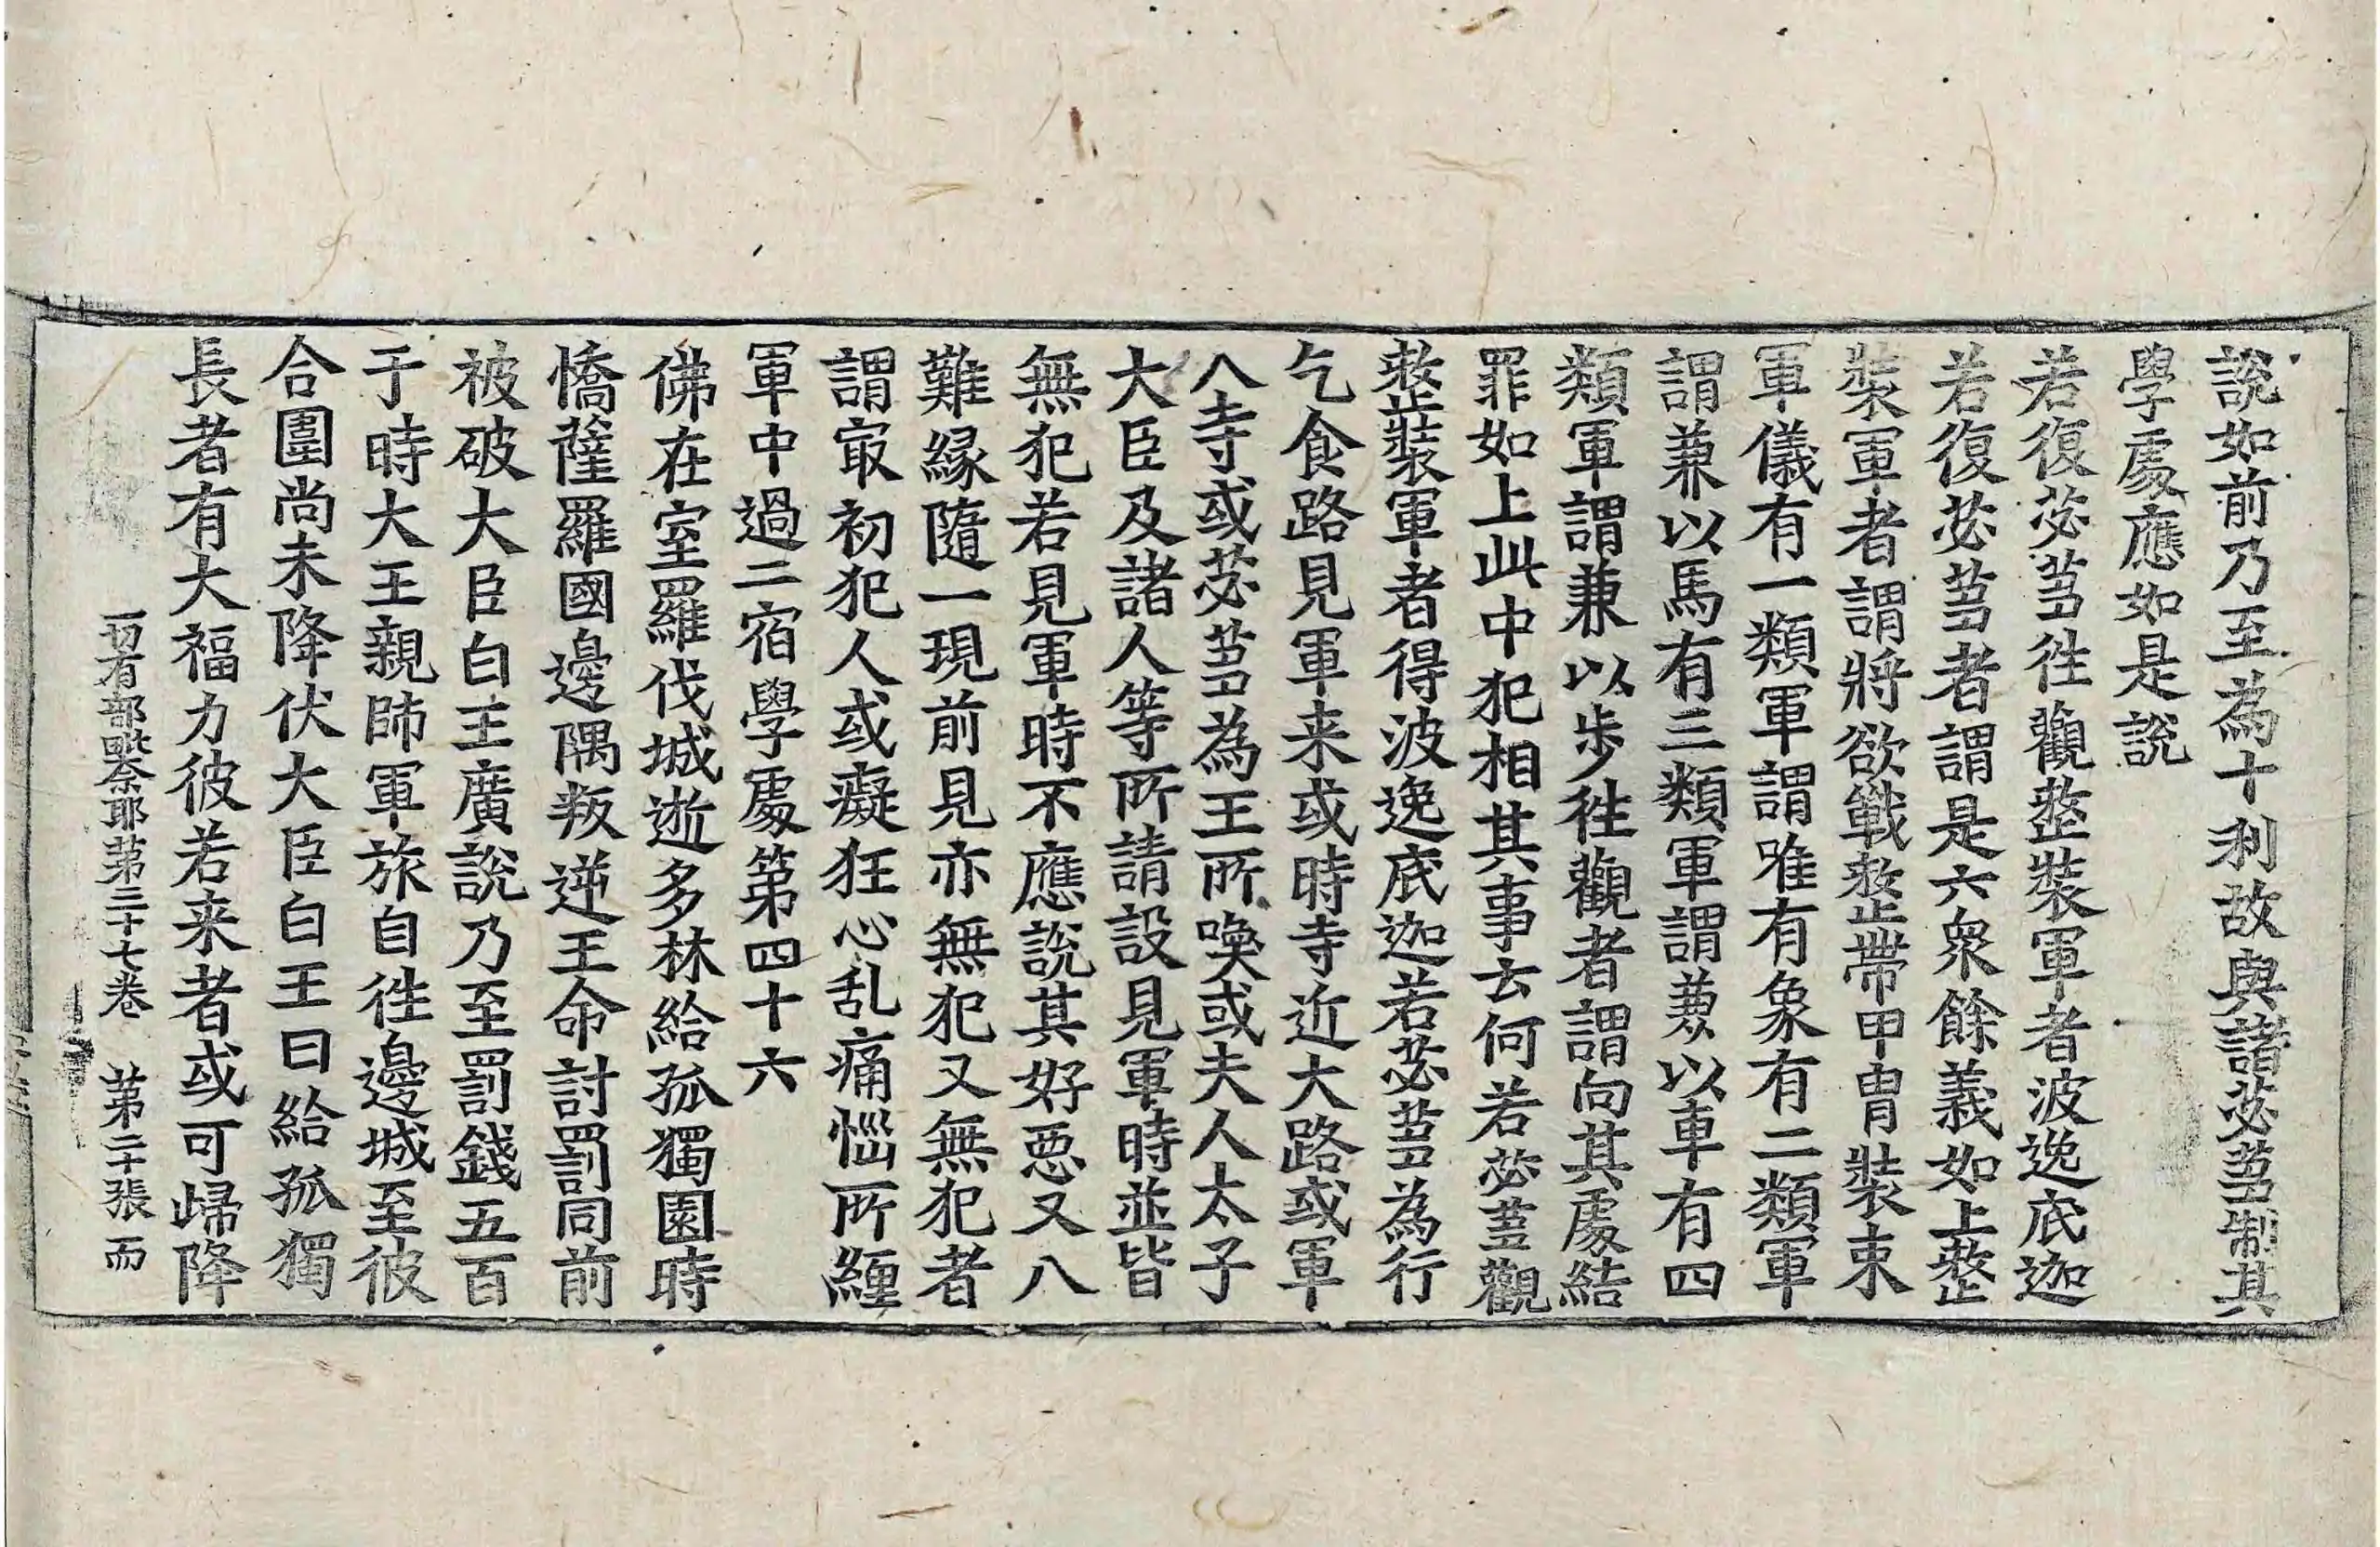 說如前乃至為十利故與諸苾蒭制其
學處應如是說
若復苾蒭往觀整裝軍者波逸底迦
若復苾蒭者謂是六衆餘義如上整
裝軍者謂將欲戰整帶甲冑裝束
軍儀有一類軍謂唯有象有二類軍
謂兼以馬有三類軍謂兼以車有四
類軍謂兼以步往觀者謂向其處結
罪如上此中犯相其事云何若苾蒭觀
整裝軍者得波逸底迦若苾蒭為行
乞食路見軍来或時寺近大路或軍
入寺或苾蒭為王所喚或夫人太子
大臣及諸人等所請設見軍時並皆
無犯若見軍時不應說其好惡又八
難緣隨一現前見亦無犯又無犯者
謂㝡初犯人或癡狂心乱痛惱所纏
軍中過二宿學處第四十六
佛在室羅伐城逝多林給孤獨園時
憍薩羅國邊隅叛逆王命討罰同前
被破大臣白王廣說乃至罰錢五百
于時大王親師軍旅自往邊城至彼
合圍尚未降伏大臣白王曰給孤獨
長者有大福力彼若来者或可歸降
一切有部毗奈耶第三十七卷 第二十張 而